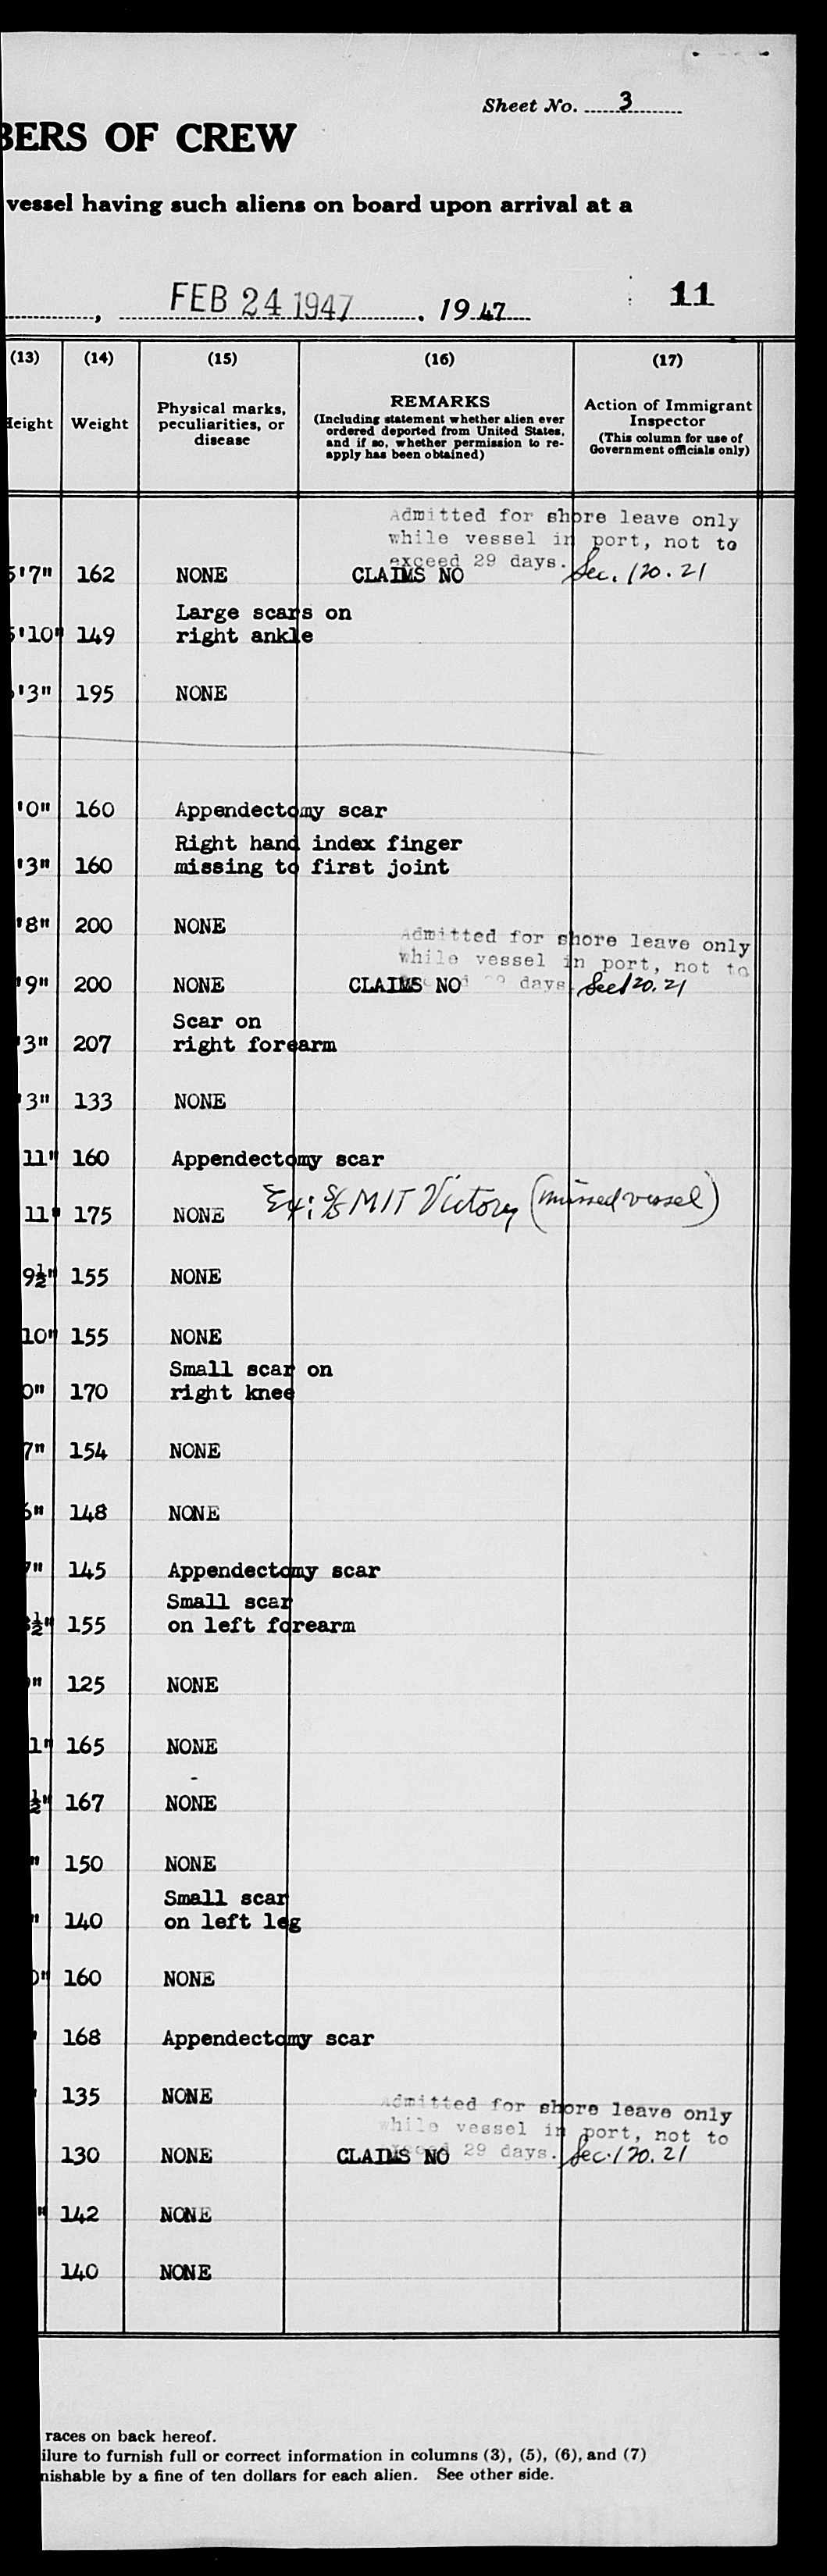 Sheet No. 3
BERS OF CREW
vessel having such aliens on board upon arrival at a
FEB 24 1947 , 1947 11
(13) (14) (15) (16) (17)
Height Weight Physical marks, peculiarities, or disease
REMARKS
(Including statement whether alien ever
ordered deported from United States,
and if so, whether permission to re-
apply has been obtained)
Action of Immigrant
Inspector
(This column for use of
Government officials only)
Admitted for shore leave only
while vessel in port, not to
exceed 29 days.
5'7" 162 NONE CLAIMS NO Sec. 120.21
Large scars on
5'10" 149 right ankle
'3" 195 NONE
'0" 160 Appendectomy scar
Right hand index finger
'3" 160 missing to first joint
'8" 200 NONE
Admitted for shore leave only
while vessel in port, not to
days
'9" 200 NONE CLAIMS NO Sec 120.21
Scar on
'3" 207 right forearm
3" 133 NONE
11" 160 Appendectomy scar
11" 175 NONE Ex: S/S MIT Victory (missed vessel)
9½" 155 NONE
10" 155 NONE
Small scar on
0" 170 right knee
7" 154 NONE
6" 148 NONE
7" 145 Appendectomy scar
Small scar
½" 155 on left forearm
" 125 NONE
1" 165 NONE
½" 167 NONE
" 150 NONE
Small scar
" 140 on left leg
0" 160 NONE
168 Appendectomy scar
135 NONE
Admitted for shore leave only
while vessel in port, not to
exceed 29 days.
130 NONE CLAIMS NO Sec. 120.21
" 142 NONE
140 NONE
races on back hereof.
ilure to furnish full or correct information in columns (3), (5), (6), and (7)
nishable by a fine of ten dollars for each alien. See other side.